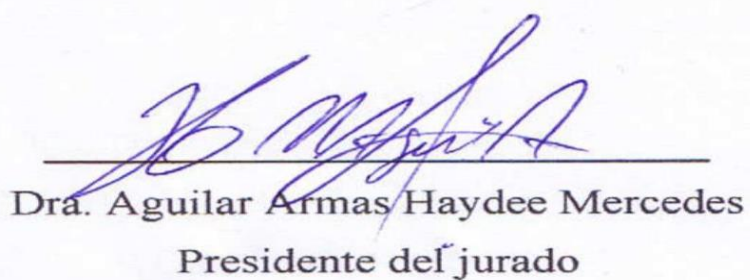 Dra. Aguilar Armas Haydee Mercedes
Presidente del jurado